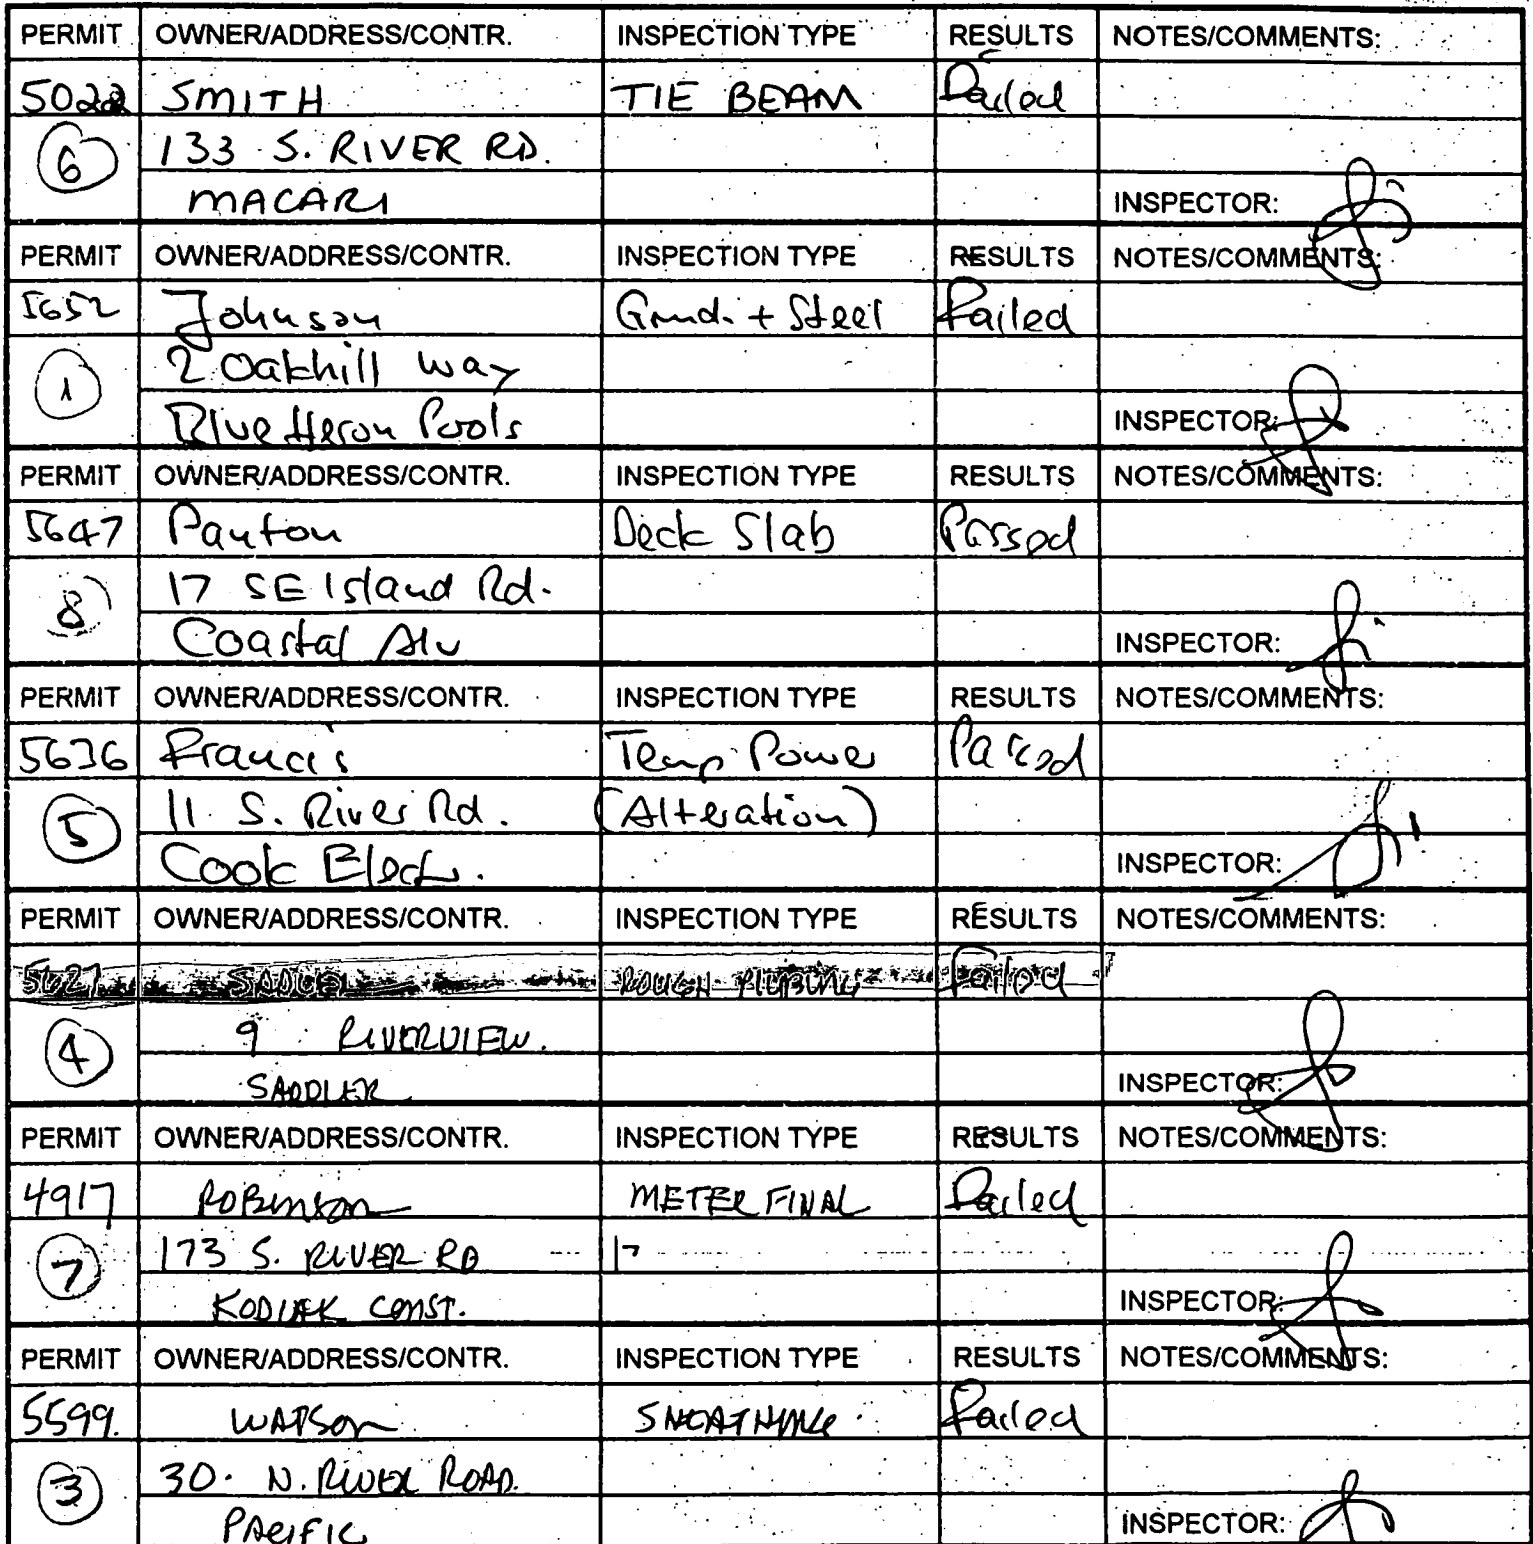 PERMIT OWNER/ADDRESS/CONTR. INSPECTION TYPE RESULTS NOTES/COMMENTS:
SMITH TIE BEAM Failed
6 133 S. RIVER RD.
MACARI INSPECTOR:
PERMIT OWNER/ADDRESS/CONTR. INSPECTION TYPE RESULTS NOTES/COMMENTS:
5652 Johnson Grnd. + Steel Failed
1 2 Oakhill Way
Blue Heron Pools INSPECTOR:
PERMIT OWNER/ADDRESS/CONTR. INSPECTION TYPE RESULTS NOTES/COMMENTS:
5647 Deck Slab Passed
8 17 SE Island Rd.
Coastal INSPECTOR:
PERMIT OWNER/ADDRESS/CONTR. INSPECTION TYPE RESULTS NOTES/COMMENTS:
5636 Francis Temp Power Passed
5 11 S. River Rd. (Alteration)
Cook Elect. INSPECTOR:
PERMIT OWNER/ADDRESS/CONTR. INSPECTION TYPE RESULTS NOTES/COMMENTS:
5627 ROUGH Failed
4 9 RIVERVIEW.
SADDLER INSPECTOR:
PERMIT OWNER/ADDRESS/CONTR. INSPECTION TYPE RESULTS NOTES/COMMENTS:
4917 ROBINSON METER FINAL Failed
7 173 S. RIVER RD
KODIAK CONST. INSPECTOR:
PERMIT OWNER/ADDRESS/CONTR. INSPECTION TYPE RESULTS NOTES/COMMENTS:
5599. WATSON SHEATHING Failed
3 30 N. RIVER ROAD.
PACIFIC INSPECTOR: